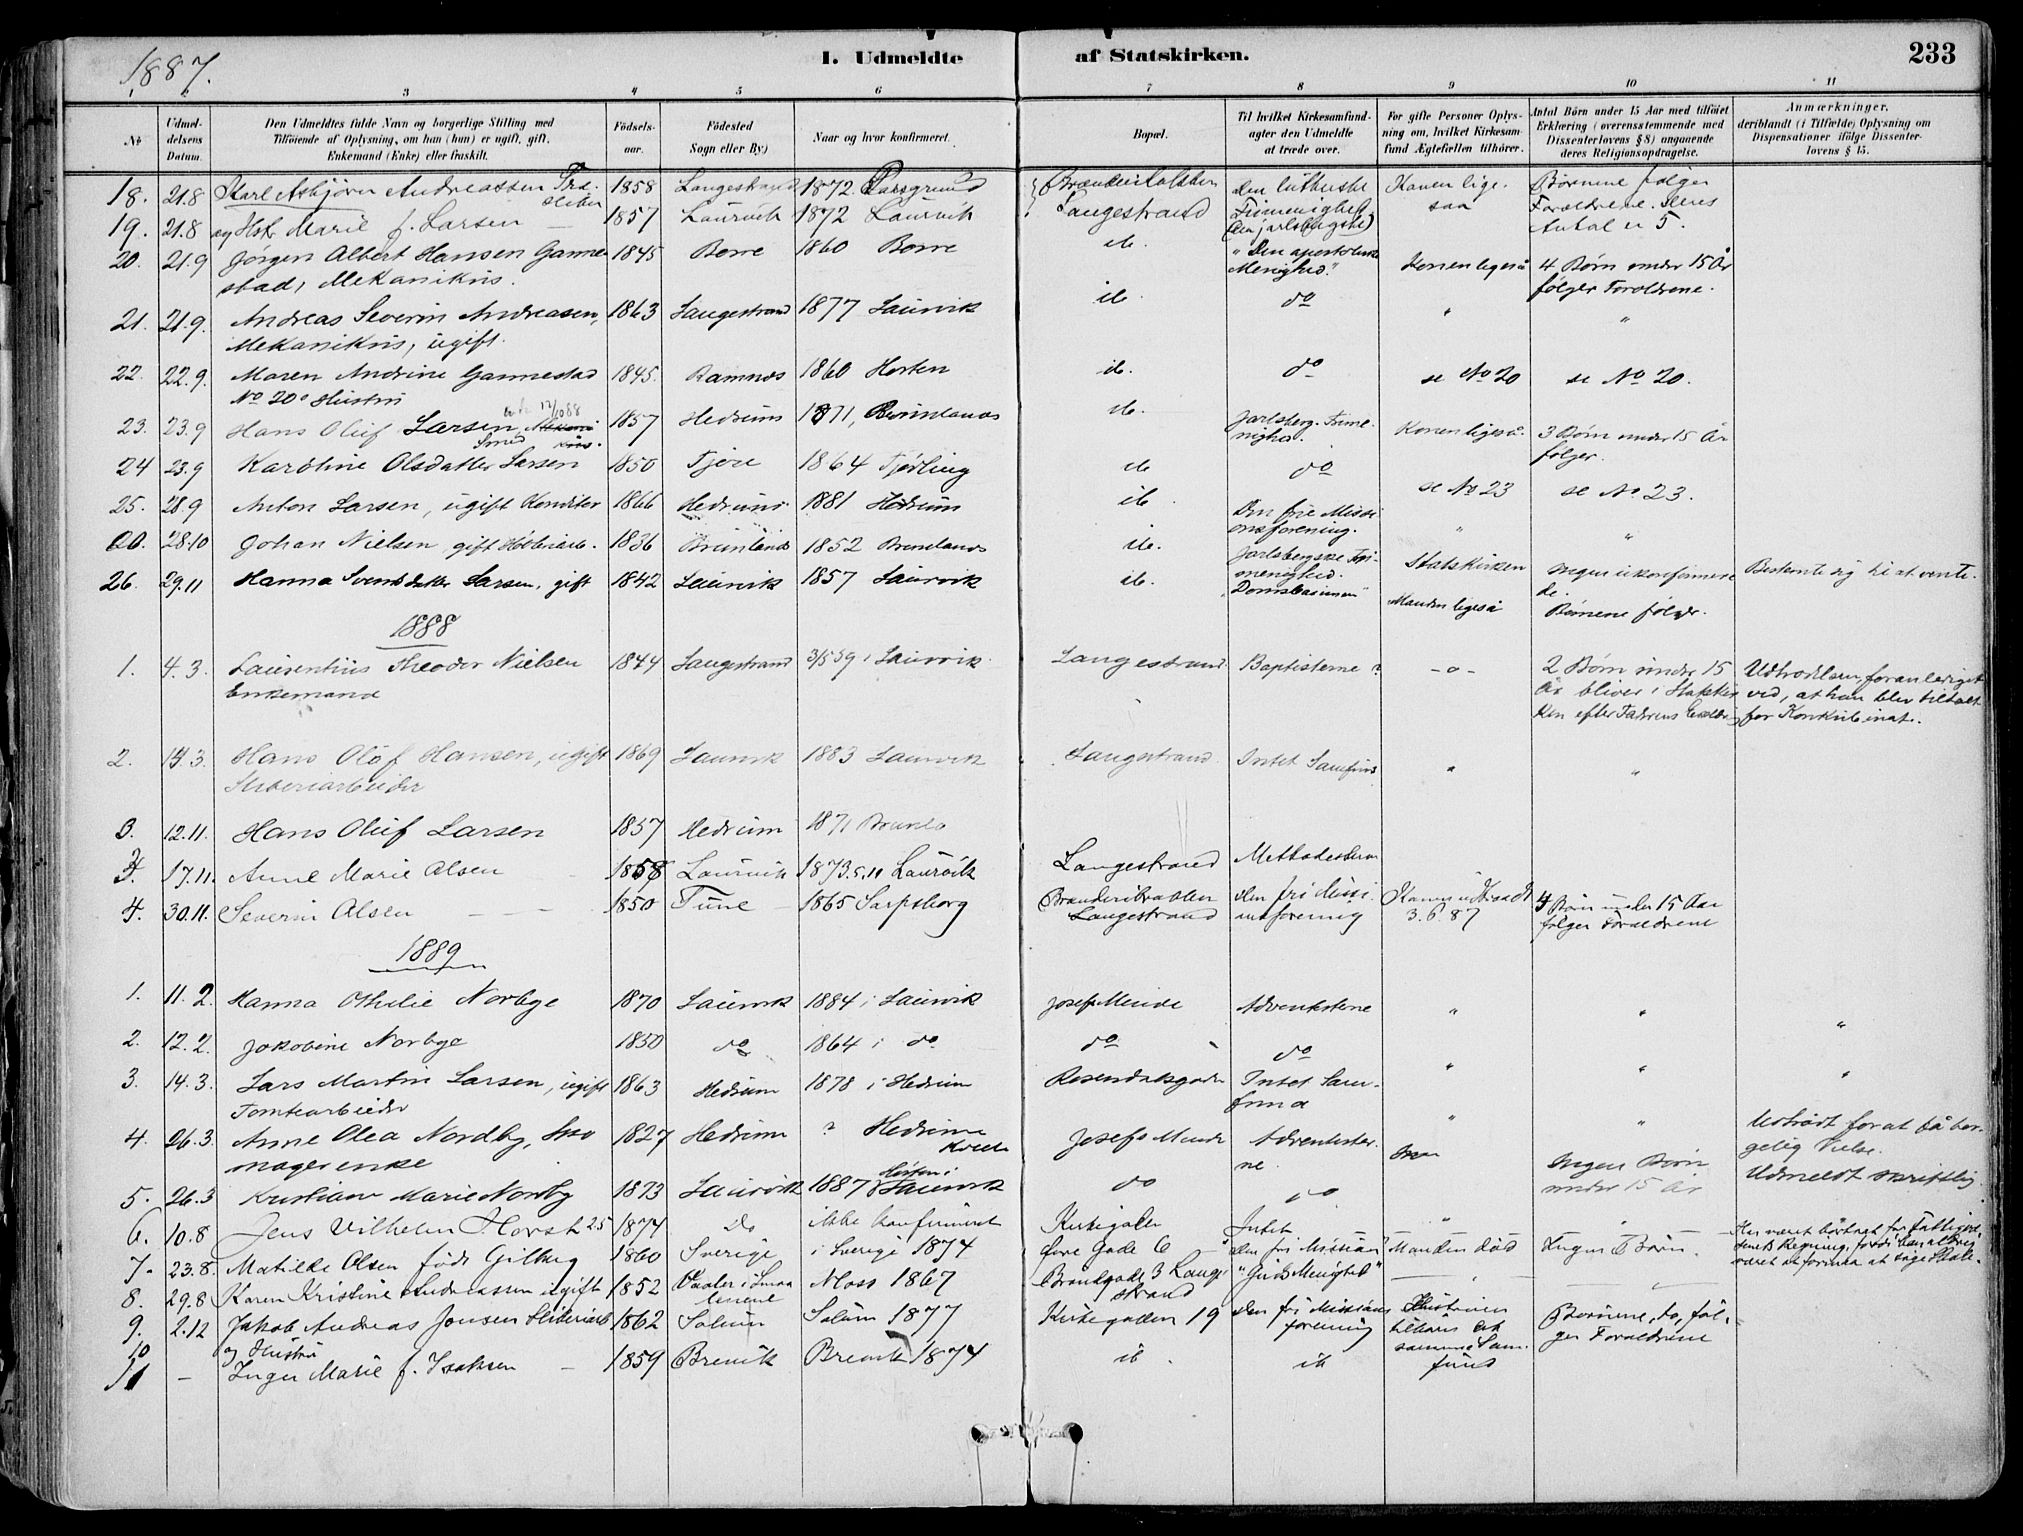 1887.
1. Udmeldte af Statskirken.
233
1 2 3 4 5 6 7 8 9 10 11
No
Udmel-
delsens
Datum.
Den Udmeldtes fulde Navn og borgerlige Stilling med
Tilföiende af Oplysning, om han (hun) er ugift, gift,
Enkemand (Enke) eller fraskilt.
Födsels-
aar.
Födested
Sogn eller By)
Naar og hvor konfirmeret.
Bopæl.
Til hvilket Kirkesamfund-
agter den Udmeldte
at træde over.
For gifte Personer Oplys-
ning om, hvilket Kirkesam-
fund Ægtefællen tilhörer.
Antal Börn under 15 Aar med tilföiet
Erklæring (overensstemmende med
Dissenterlovens § 8) angaaende
deres Religionsopdragelse.
Anmærkninger,
deriblandt (i Tilfælde) Oplysning om
Dispensationer ifölge Dissenter-
lovens § 15.
18. 21.8 Karl Asbjörn Andreassen 1858 Langestrand 1872 Porsgrund Langestrand Den lutherske Frimenighed Konen lige-saa Børnene følger Forældrene. Deres Antal er 5.
19. 21.8 og Hstr. Marie f. Larsen 1857 Laurvik 1872 Laurvik
20. 21.9 Jørgen Albert Hansen Ganne-stad, Mekanikus. 1845 Borre 1860 Borre ib. "Den apostoliske Menighed." Konen ligeså 4 Børn under 15 År følger Forældrene.
21. 21.9. Andreas Severin Andreasen, Mekanikus, ugift. 1863 Langestrand 1877 Laurvik ib. do " "
22. 22.9. Maren Andrine Gannestad No 20s Hustru 1845. Ramnæs 1860 Horten ib. do se No 20 se No 20.
23. 23.9 Hans Oluf Larsen, Smed 1857 Hedrum 1871, Brunlanæs ib. Jarlsberg. Frime-nighed. Konen ligeså. 3 Børn under 15 År følger.
24 23.9 Karoline Olsdatter Larsen 1850 Tjøre 1864 Tjølling ib do se No 23 se No 23.
25. 28.9 Anton Larsen, ugift Konditor 1866 Hedrum 1881 Hedrum ib. Den frie Missi-onsforening. " "
28.10 Johan Nielsen, gift 1836 Brunlanæs 1852 Brunlanæs ib. Jarlsbergske Fri-menighed. Statskirken Ingen ukonfirmere-de. Bestemte sig til at vente.
26. 29.11 Hanna Svendsdatter Larsen, gift 1842 Laurvik 1857 Laurvik ib. Manden ligeså Børnene følger.
1888
1. 4.3. Laurentius Theodor Nielsen Enkemand 1844 Langestrand 3/5 59 i Laurvik. Langestrand Baptisterne? -o- 2 Børn under 15 År bliver i Statskir-ken efter Faderens Udtrædelsen foranlediget ved, at han blev tiltalt for Konkubinat.
2. 14.3. Hans Olof Hansen, ugift Sliberiarbeider 1869 Laurvik 1883 Laurvik Langestrand. Intet Samfund " "
3. 12.11. Hans Oluf Larsen 1857 Hedrum 1871 Brunla
3. 17.11. Anne Marie Olsen 1858 Laurvik 1873.5.11 Laurvik Langestrand
4. 30.11. Severin Olsen 1850 Tune 1865 Sarpsborg Langestrand den fri Missi-onsforening 3.6.87 4 Børn under 15 Aar følger Forældrene
1889
1. 11.2. Hanna Othilie Norbye 1870 Laurvik 1884 i Laurvik Josef Minde Adventisterne " "
2. 12.2. Jakobine Norbye 1850 do 1864 i do do do " " "
3. 14.3. Lars Martin Larsen, ugift Tomtearbeider 1863 Hedrum 1878 i Hedrum Rosendalsgade Intet Sam-fund " " "
4. 26.3. Anne Olea Nordby, Sko-mager enke 1827 Hedrum ? Hedrum Kvelle Josefs Minde Adventister-ne. Ingen Børn under 15 År Udtrådt for at få bor-gelig Vielse.
5. 26.3 Kristiane Marie Nordby 1873 Laurvik 1887 Laurvik do do Udmeldt skriftlig
6. 10.8 Jens Vilhelm Horst 25 1874 Do ikke konfirmeret Kirkegaden Intet " "
7. 23.8. Matilde Olsen født Gilberg 1860 Sverige i Sverige 1874 Øvre Gade 6 den fri Mission Manden död Ingen Børn.
8. 29.8 Karen Kristine Andreassen ugift 1852 Vaaler i Smaa-lenene Moss 1867 Brandgade 3 Lange-strand "Guds Menighed"
9. 2.12 Jakob Andreas Jonsen Sliberiarb 1862 Solum Solum 1877 Kirkegaden 19 den fri Missions forening Hustruen tilhører det samme Sam-fund Børnene, to, føl-ger Forældrene
10 og Hustru
11 - Inger Marie f. Isaksen 1859 Brevik Brevik 1874 ib ib